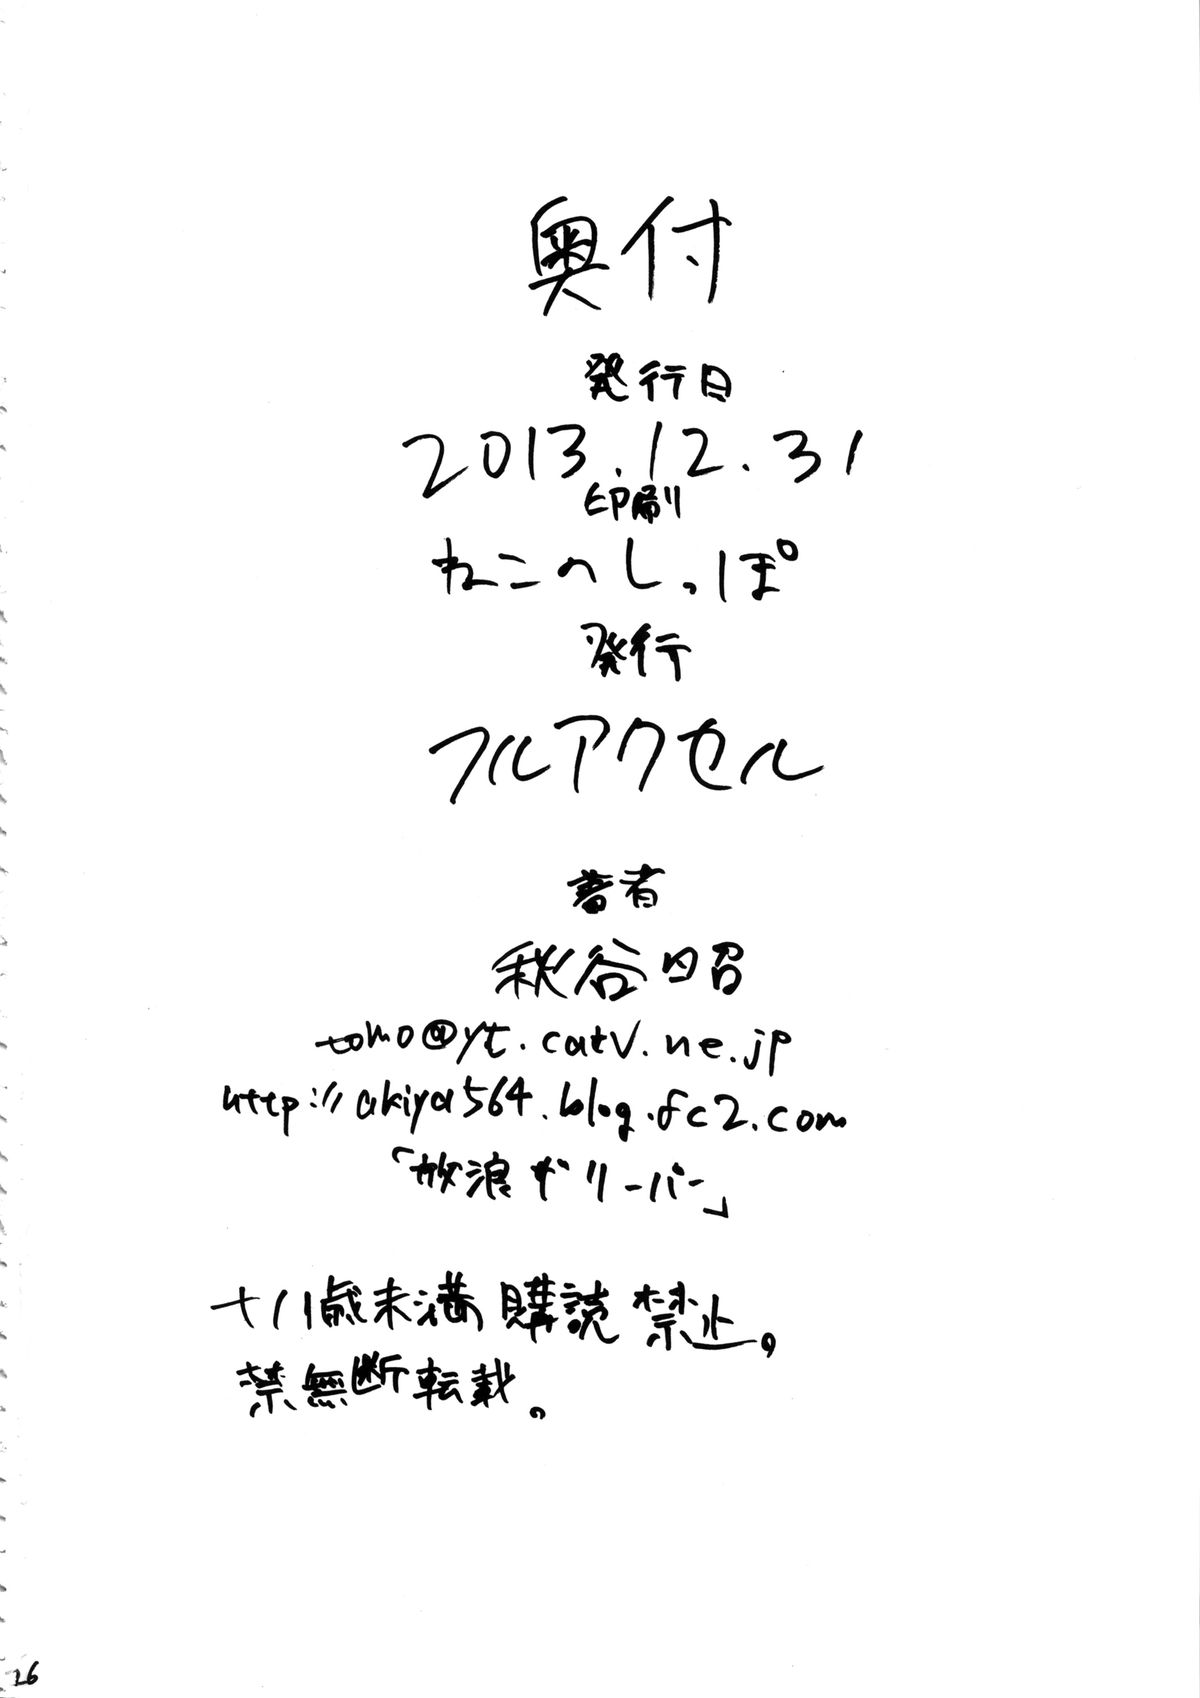 奥付
発行日
2013.12.31
印刷
ねこのしっぽ
発行
フルアクセル
著者
秋谷昭
tomo@yt.catv.ne.jp
http://akiya564.blog.fc2.com
「放浪ギリーパー」
十八歳未満購読禁止。
禁無断転載。
26